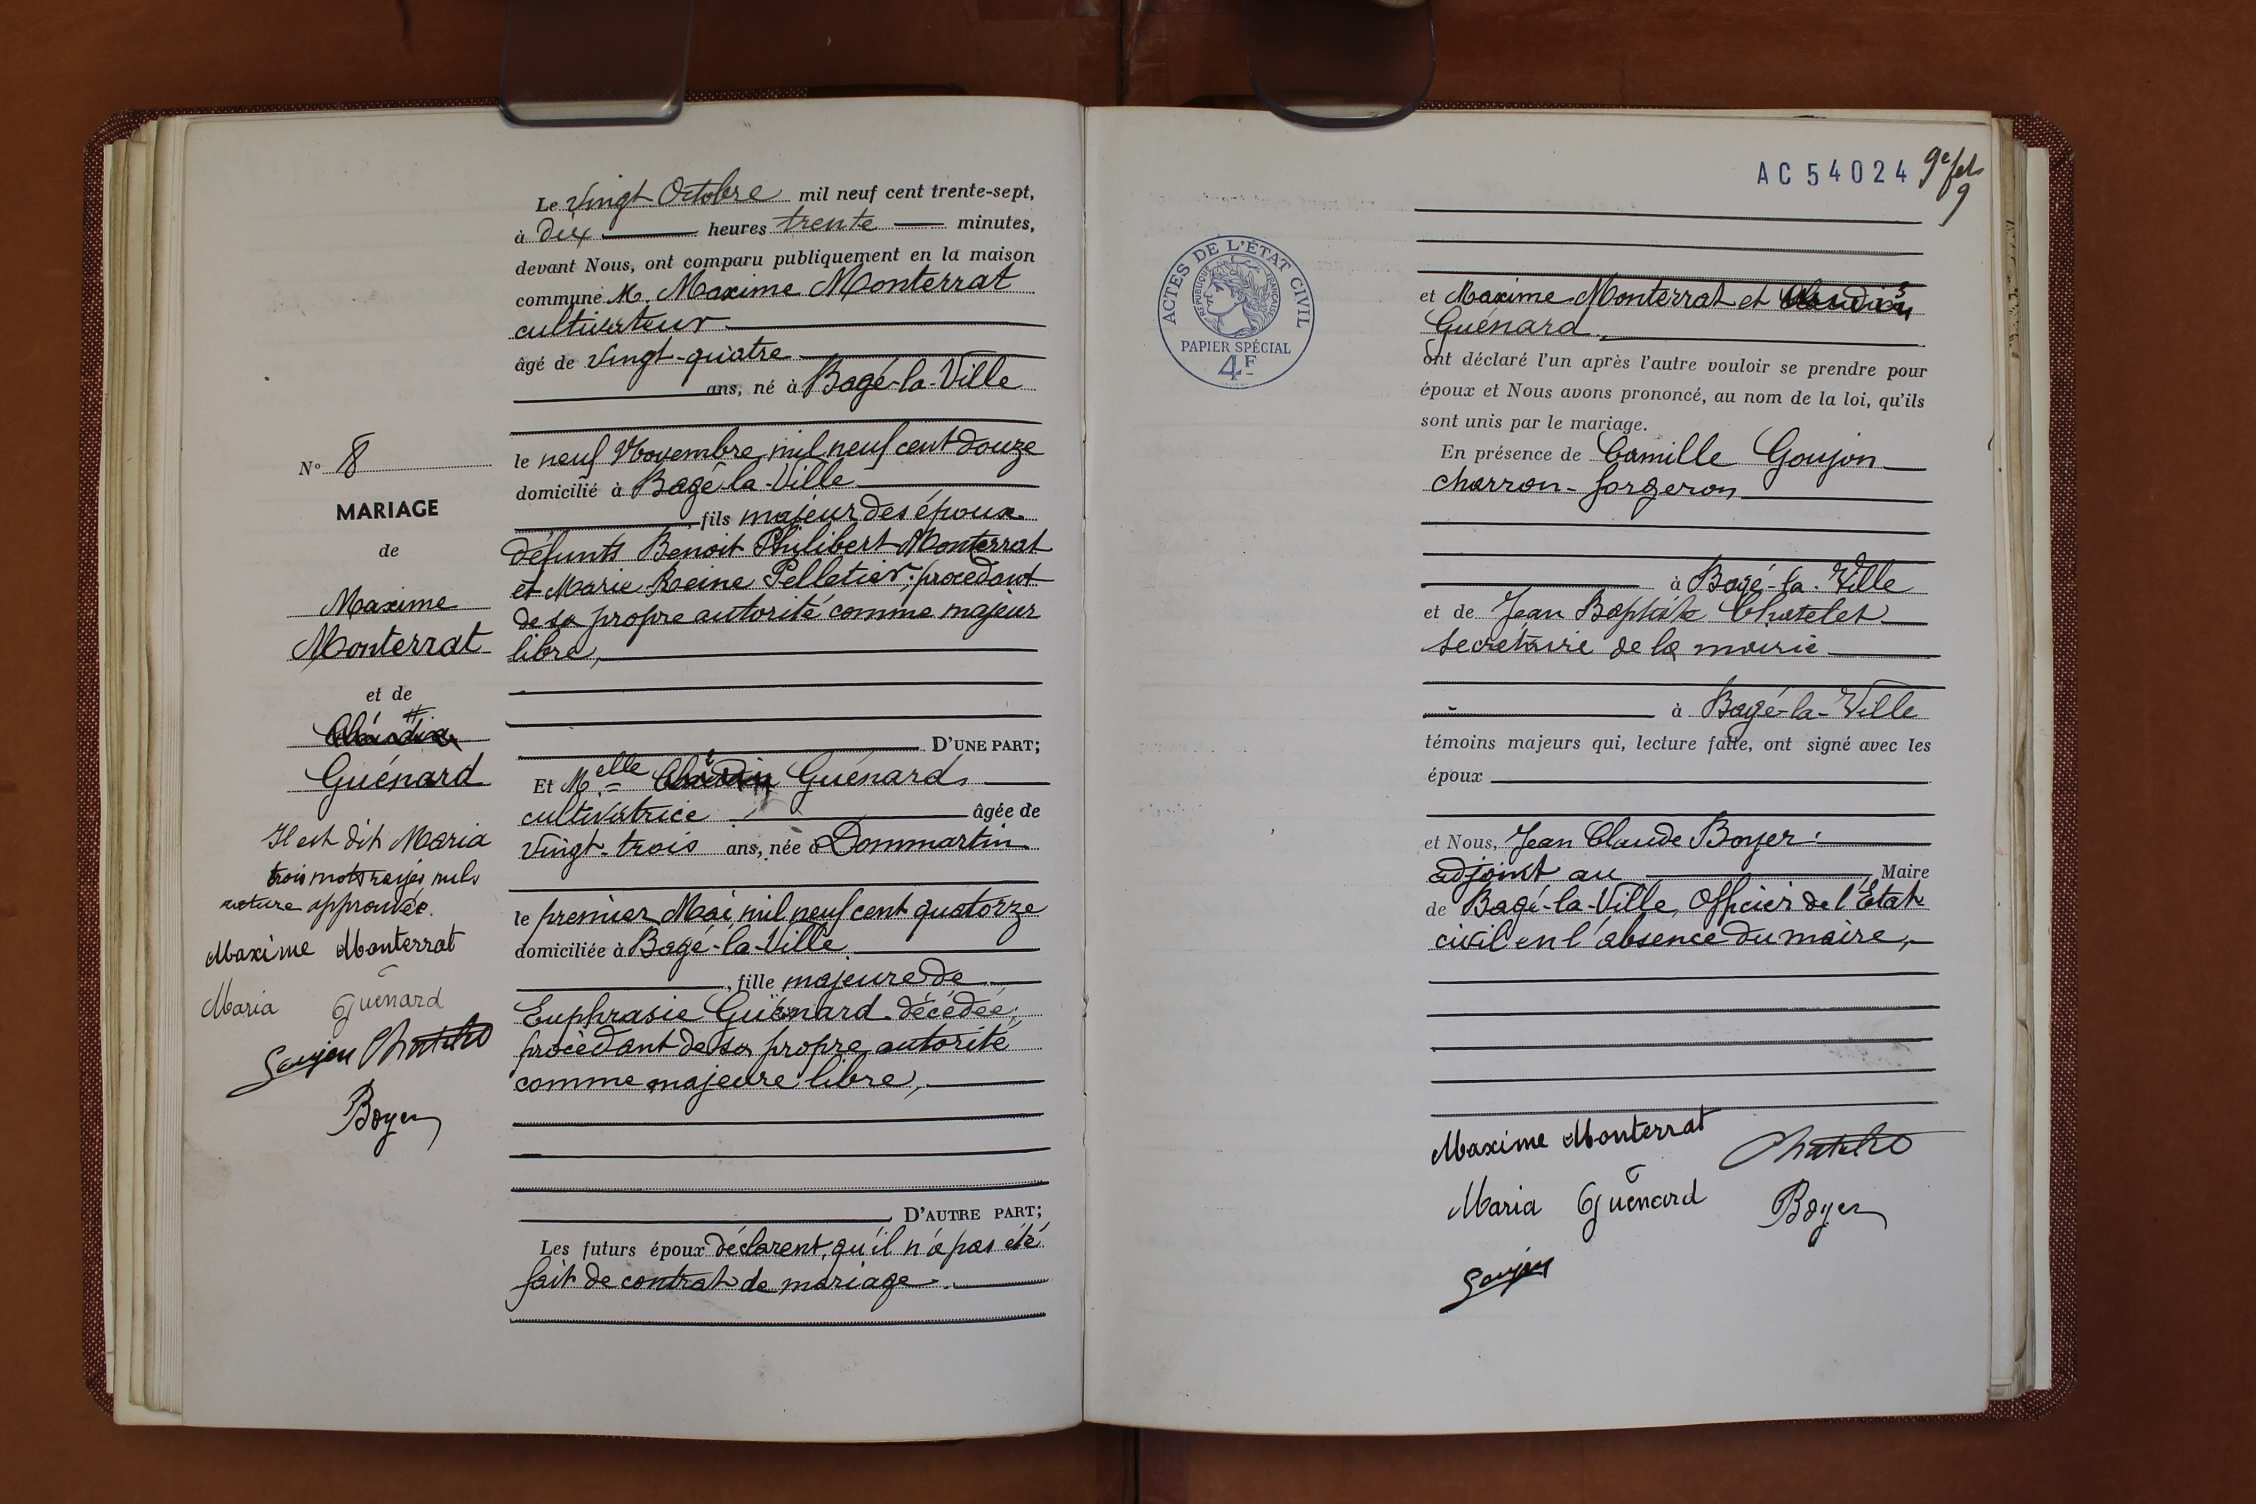 Le vingt Octobre mil neuf cent trente-sept,
à dix heures trente minutes,
devant Nous, ont comparu publiquement en la maison
commune M. Maxime Monterrat
cultivateur
âgé de vingt-quatre
ans, né à Bagé-la-Ville
le neuf Novembre mil neuf cent douze
domicilié à Bagé-la-Ville
fils majeur des époux
défunts Benoit Philibert Monterrat
et Marie Reine Pelletier, procédant
de sa propre autorité comme majeur
libre,
D'UNE PART;
Et Melle Claudia Guénard
cultivatrice âgée de
vingt-trois ans, née à Dommartin
le premier Mai mil neuf cent quatorze
domiciliée à Bagé-la-Ville
, fille majeure de
Euphrasie Guénard décédée,
procédant de sa propre autorité
comme majeure libre,
D'AUTRE PART;
Les futurs époux déclarent qu'il n'a pas été
fait de contrat de mariage.
N° 8
MARIAGE
de
Maxime
Monterrat
et de
Claudia
Guénard
Il est dit Maria
trois mots rayés nuls
rature approuvée.
Maxime Monterrat
Maria Guénard
Goujon Chatelet
Boyer
AC 54024
9e
9
ACTES DE L'ÉTAT CIVIL
RÉPUBLIQUE FRANÇAISE
PAPIER SPÉCIAL
4F
et Maxime Monterrat et Claudia
Guénard
ont déclaré l'un après l'autre vouloir se prendre pour
époux et Nous avons prononcé, au nom de la loi, qu'ils
sont unis par le mariage.
En présence de Camille Goujon
charron-forgeron
à Bagé-la-Ville
et de Jean Baptiste Chatelet
secrétaire de la mairie
à Bagé-la-Ville
témoins majeurs qui, lecture faite, ont signé avec les
époux
et Nous, Jean Claude Boyer
adjoint au Maire
de Bagé-la-Ville, Officier de l'Etat
civil en l'absence du maire,
Maxime Monterrat Chatelet
Maria Guénard Boyer
Goujon